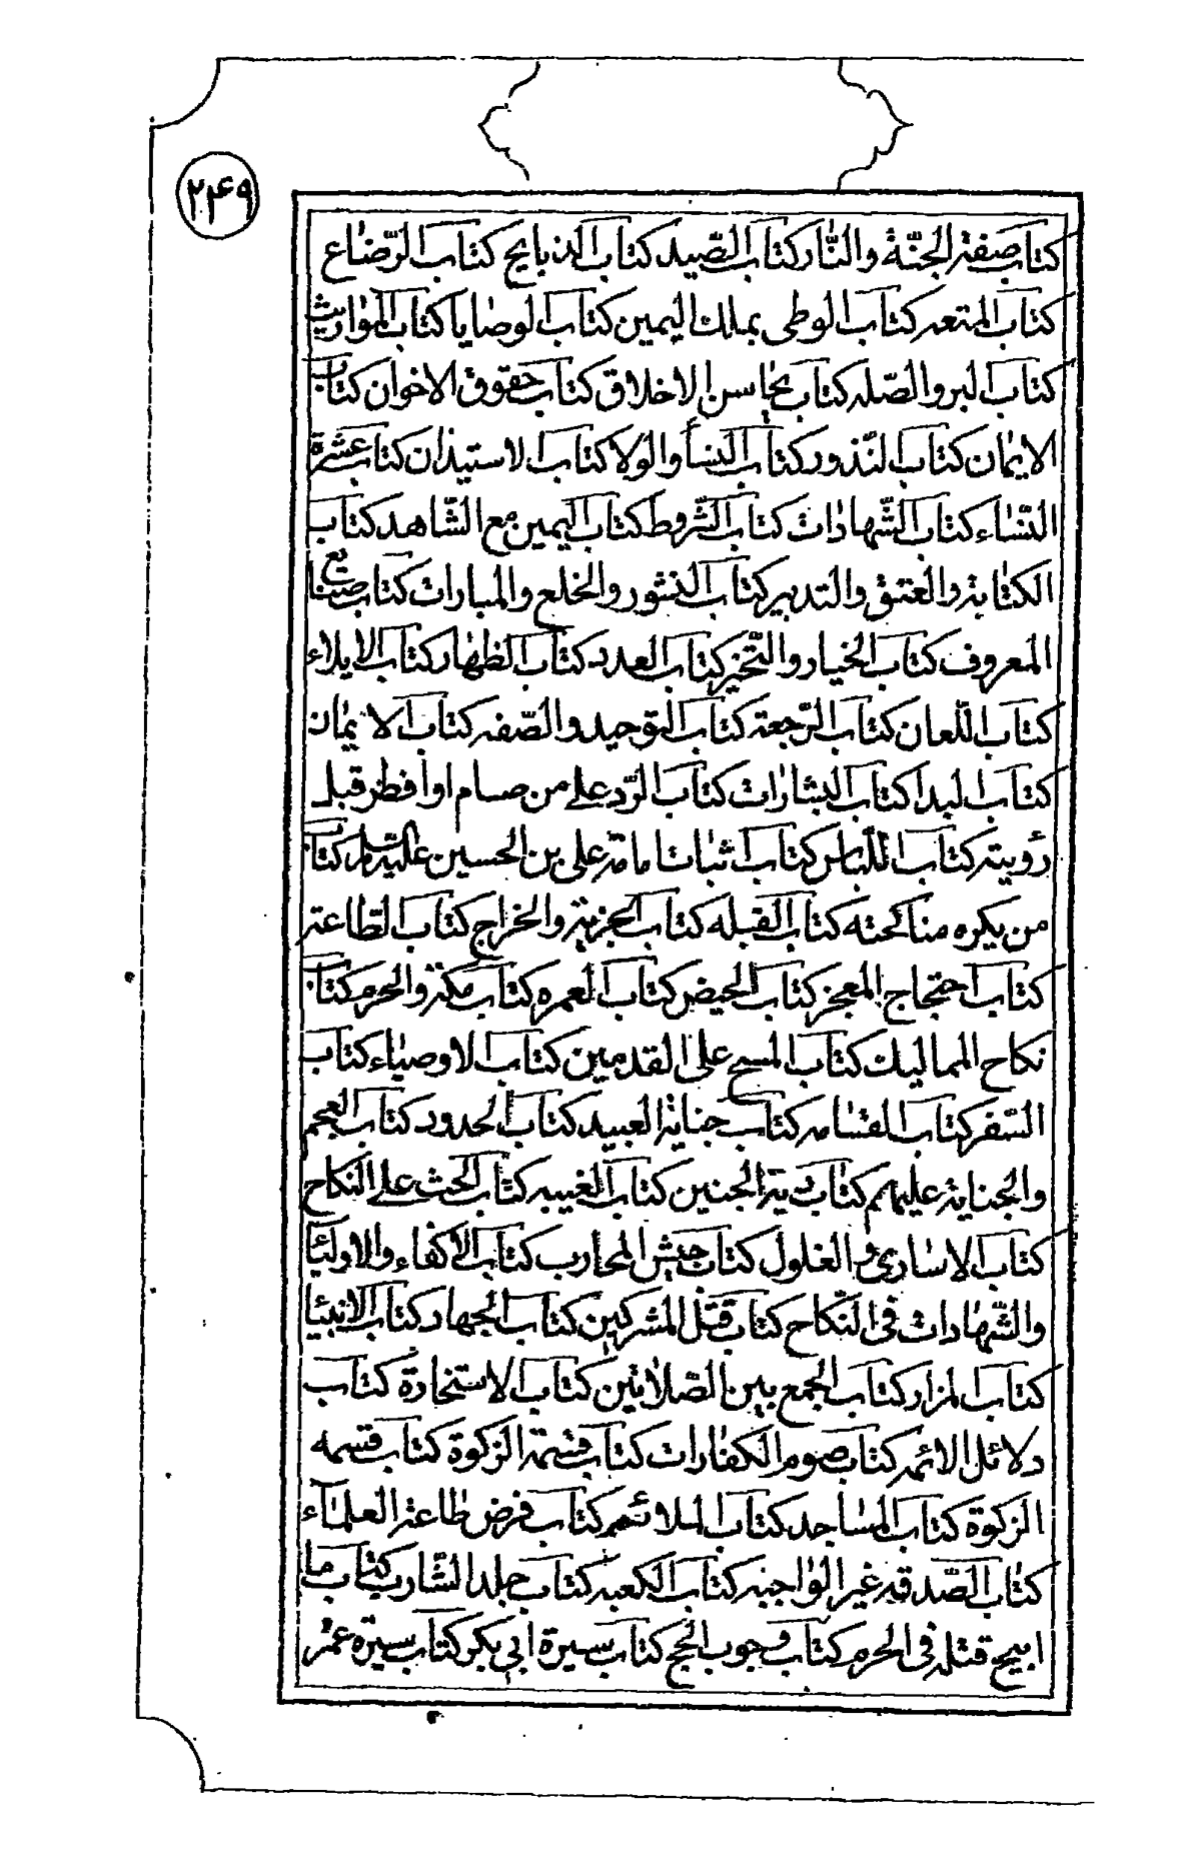 ۲۴۹
كتاب صفة الجنّة والنّار كتاب الصّيد كتاب الذبايح كتاب الرّضاع
كتاب المتعه كتاب الوطى بملك اليمين كتاب الوصايا كتاب المواريث
كتاب البر والصّله كتاب محاسن الاخلاق كتاب حقوق الاخوان كتاب
الايمان كتاب النّذور كتاب النسأ والولا كتاب الاستيذان كتاب عشرة
النّساء كتاب الشّهادات كتاب الشّروط كتاب اليمين مع الشّاهد كتاب
الكتابة والعتق والتدبير كتاب النشور والخلع والمبارات كتاب صنايع
المعروف كتاب الخيار والتّخير كتاب العدد كتاب الظهار كتاب الايلاء
كتاب اللّعان كتاب الرّجعة كتاب التوحيد والصّفه كتاب الايمان
كتاب البدا كتاب البشارات كتاب الرّد على من صام او افطر قبل
رؤيته كتاب اللّباس كتاب اثبات امامة على بن الحسين عليه السلم كتاب
من يكره مناكحته كتاب القبله كتاب الجزية والخراج كتاب الطّاعة
كتاب احتجاج المعجز كتاب الحيض كتاب العمره كتاب مكّة والحرم كتاب
نكاح المماليك كتاب المسح على القدمين كتاب الاوصياء كتاب
السّفر كتاب القسامه كتاب جناية العبيد كتاب الحدود كتاب العجم
والجناية عليهم كتاب دية الجنين كتاب الغيبه كتاب الحث على النكاح
كتاب الاسارى والغلول كتاب جيش المحارب كتاب الاكفاء والاوليا
والشّهادات فى النّكاح كتاب قتل المشركين كتاب الجهاد كتاب الانبيا
كتاب المزار كتاب الجمع بين الصّلاتين كتاب الاستخارة كتاب
دلائل الائمه كتاب صوم الكفارات كتاب قسمة الزكوة كتاب قسمه
الزكوة كتاب المساجد كتاب الملائهم كتاب فرض طاعة العلماء
كتاب الصّدقه غير الواجبه كتاب الكعبه كتاب جلد الشّارب كتاب ما
ابيح قتله فى الحرم كتاب وجوب الحج كتاب سيرة ابى بكر كتاب سيرة عمر